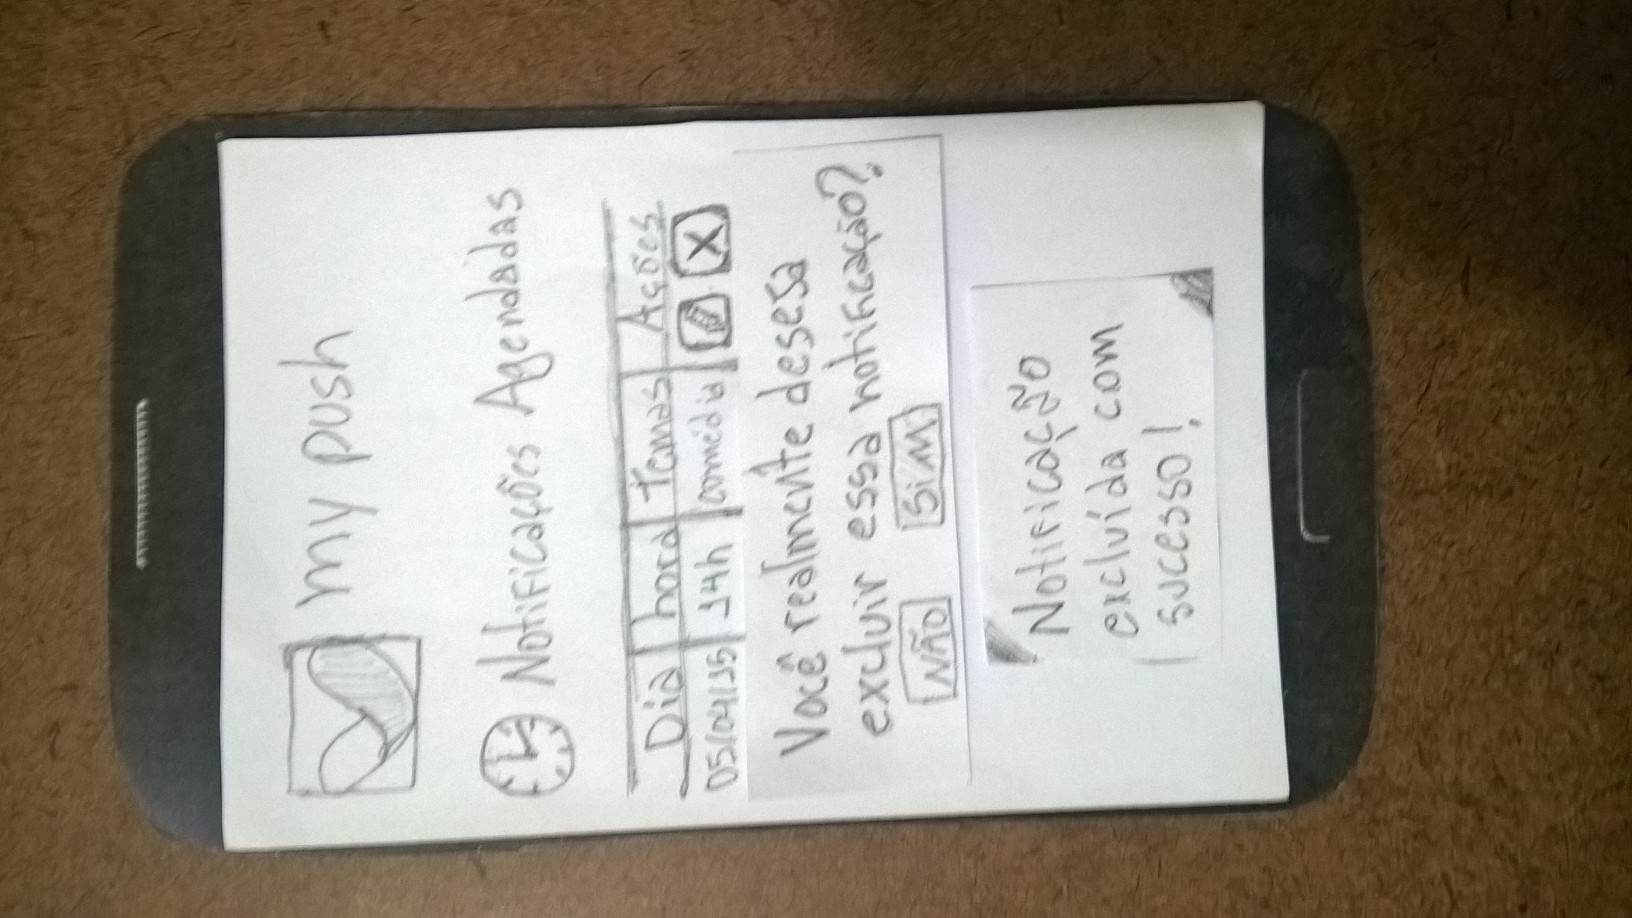 my push
Notificações Agendadas
Dia hora temas Ações
05/04/15 14h comédia X
Você realmente deseja
excluir essa notificação?
NÃO SiM
Notificação
excluída com
sucesso!